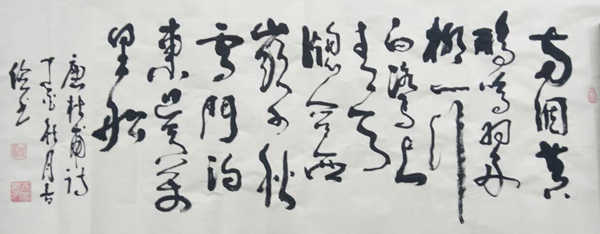 两個黄
鸝鳴翠
柳一行
白鷺上
青天
窓含西
嶺千秋
雪門泊
東吴萬
里船
唐杜甫詩
秋月